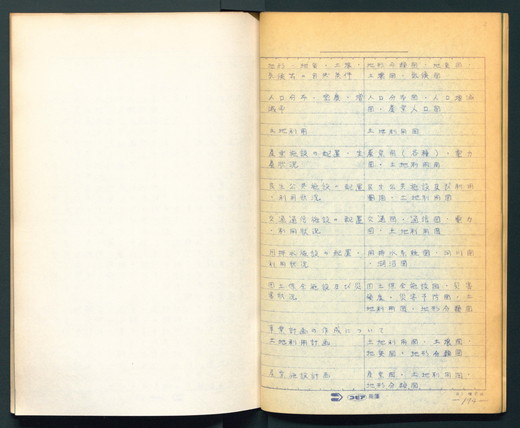 地形、地質、土壌、 地形分類図、地質図、
気候等の自然条件 土壌図、気候図
人口分布、密度、増 人口分布図、人口増減
減率 図、産業人口図
土地利用 土地利用図
産業施設の配置、生 産業図(各種)、電力
産状況 図、土地利用図
厚生公共施設の配置 厚生公共施設及び利用
、利用状況 土地利用図
交通通信施設の配置 交通図、通信図、電力
、利用状況 図、土地利用図
用排水施設の配置、 用排水系統図、河川図
利用状況 、湖沼図
国土保全施設及び災 国土保全施設図、災害
害状況 災害予防図、土
地利用図、地形分類図
事業計画の作成について
土地利用計画 土地利用図、土壌図、
地質図、地形分類図
産業施設計画 産業図、土地利用図、
地形分類図
コピア